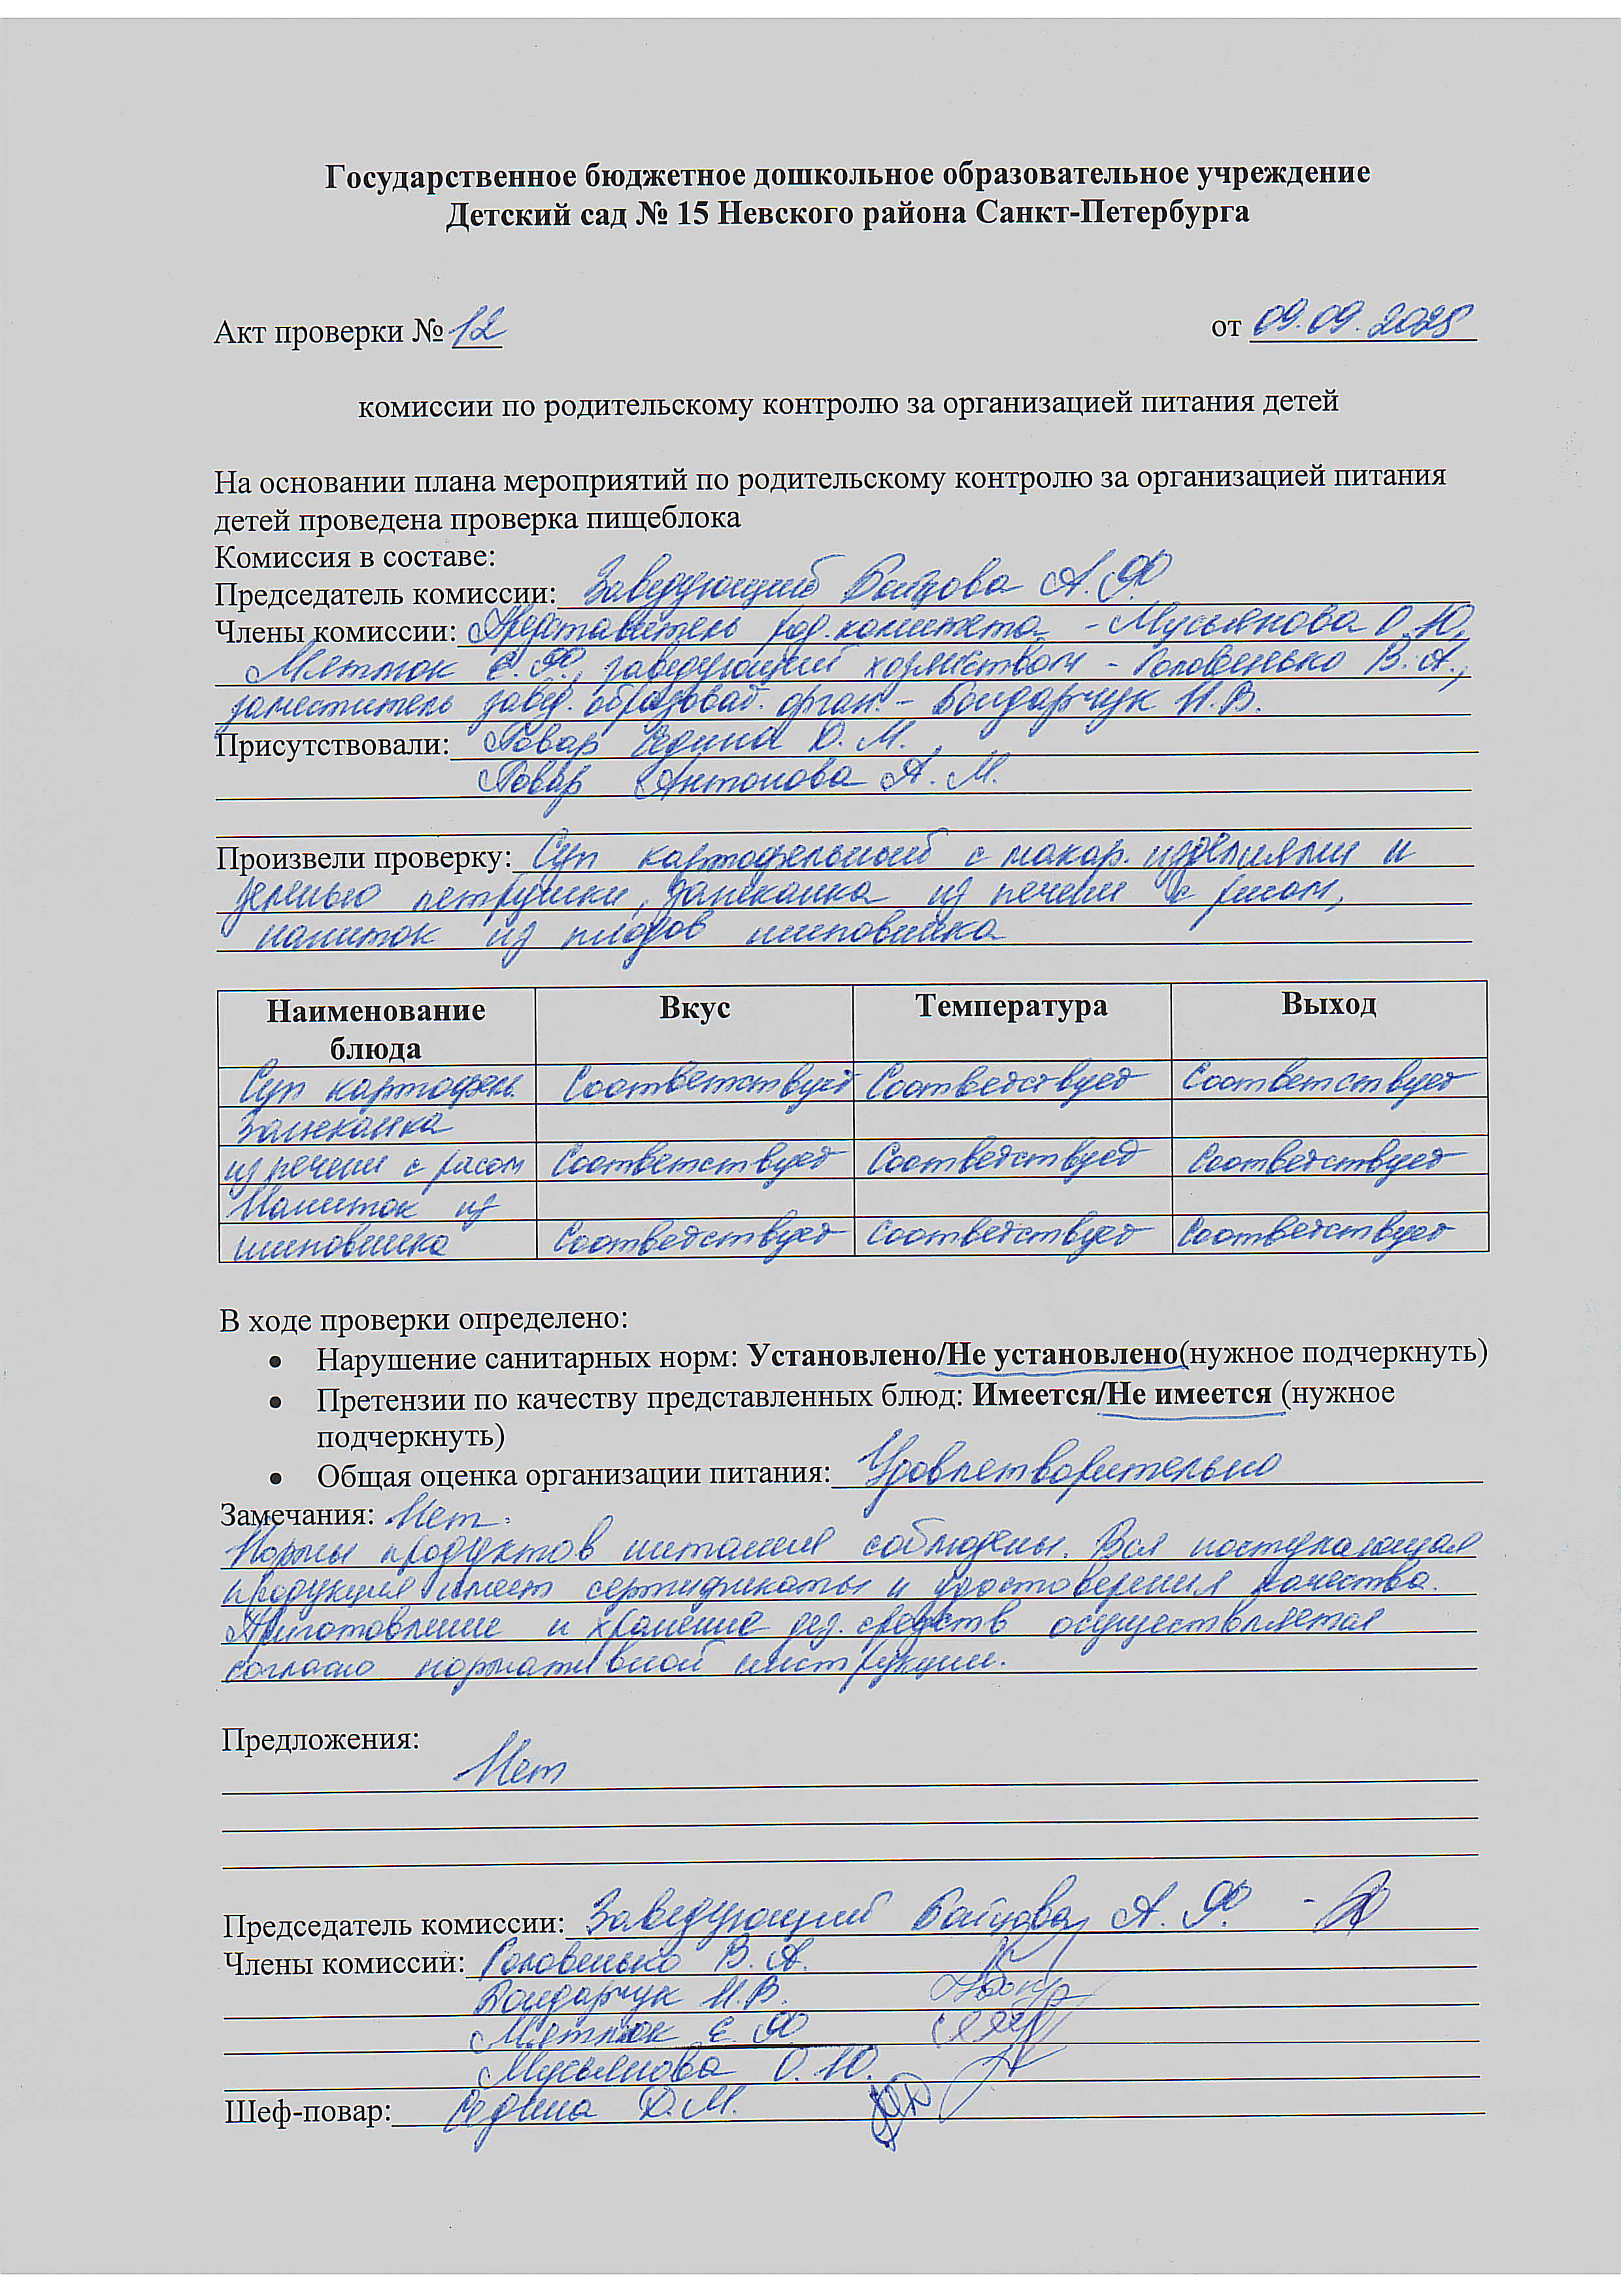 Государственное бюджетное дошкольное образовательное учреждение
Детский сад № 15 Невского района Санкт-Петербурга
Акт проверки № 12 от 09.09.2025
комиссии по родительскому контролю за организацией питания детей
На основании плана мероприятий по родительскому контролю за организацией питания
детей проведена проверка пищеблока
Комиссия в составе:
Председатель комиссии: Заведующий Байцова А.Ф.
Члены комиссии: Представитель род. комитета - Мусьянова О.Ю,
Мятлюк Е.Ф, заведующий хозяйством - Головенько В.А.,
заместитель завед. образоват. орган. - Бондарчук Н.В.
Присутствовали: Повар Седина Д.М.,
Повар Антонова А.М.
Произвели проверку: Суп картофельный с макар. изделиями и
зеленью петрушки, запеканка из печени с рисом,
напиток из плодов шиповника
Наименование блюда Вкус Температура Выход
Суп картофель. Соответствует Соответствует Соответствует
Запеканка
из печени с рисом Соответствует Соответствует Соответствует
Напиток из
шиповника Соответствует Соответствует Соответствует
В ходе проверки определено:
• Нарушение санитарных норм: Установлено/Не установлено(нужное подчеркнуть)
• Претензии по качеству представленных блюд: Имеется/Не имеется (нужное
подчеркнуть)
• Общая оценка организации питания: Удовлетворительно
Замечания: Нет.
Нормы продуктов питания соблюдены. Вся поступающая
продукция имеет сертификаты и удостоверения качества.
Приготовление и хранение дез. средств осуществляется
согласно нормативной инструкции.
Предложения:
Нет
Председатель комиссии: Заведующий Байцова А.Ф. -
Члены комиссии: Головенько В.А.
Бондарчук Н.В.
Мятлюк Е.Ф
Мусьянова О.Ю.
Шеф-повар: Седина Д.М.